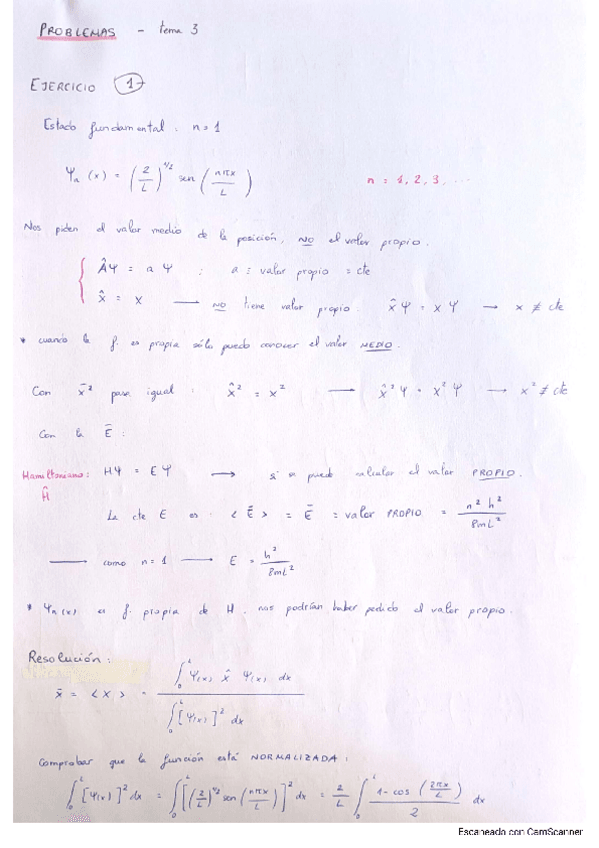 PROBLEMAS - tema 3
EJERCICIO 1-
Estado fundamental : n=1
Ψn (x) = (2/L)^1/2 sen (nπx/L)    n = 1, 2, 3, ...
Nos piden el valor medio de la posición, NO el valor propio.
ÂΨ = a Ψ ; a = valor propio = cte
x̂ = x ⟶ NO tiene valor propio. x̂ Ψ = x Ψ → x ≠ cte
* cuando la f. es propia sólo puedo conocer el valor MEDIO.
Con x̄² pasa igual : x̂² = x² ⟶ x̂² Ψ = x² Ψ → x² ≠ cte
Con la Ē :
Hamiltoniano: HΨ = EΨ ⟶ si se puede calcular el valor PROPIO.
Ĥ
La cte E es : < Ē > = Ē = valor PROPIO = n² h² / 8mL²
⟶ como n=1 ⟶ E = h² / 8mL²
* Ψn(x) es f. propia de H. nos podrían haber pedido el valor propio.
Resolución:
x̄ = <x> = ∫₀ᴸ Ψ(x) x̂ Ψ(x) dx / ∫₀ᴸ [Ψ(x)]² dx
Comprobar que la función está NORMALIZADA :
∫₀ᴸ [Ψ(x)]² dx = ∫₀ᴸ [(2/L)^1/2 sen (nπx/L)]² dx = 2/L ∫₀ᴸ 1-cos (2πx/L) / 2 dx
Escaneado con CamScanner